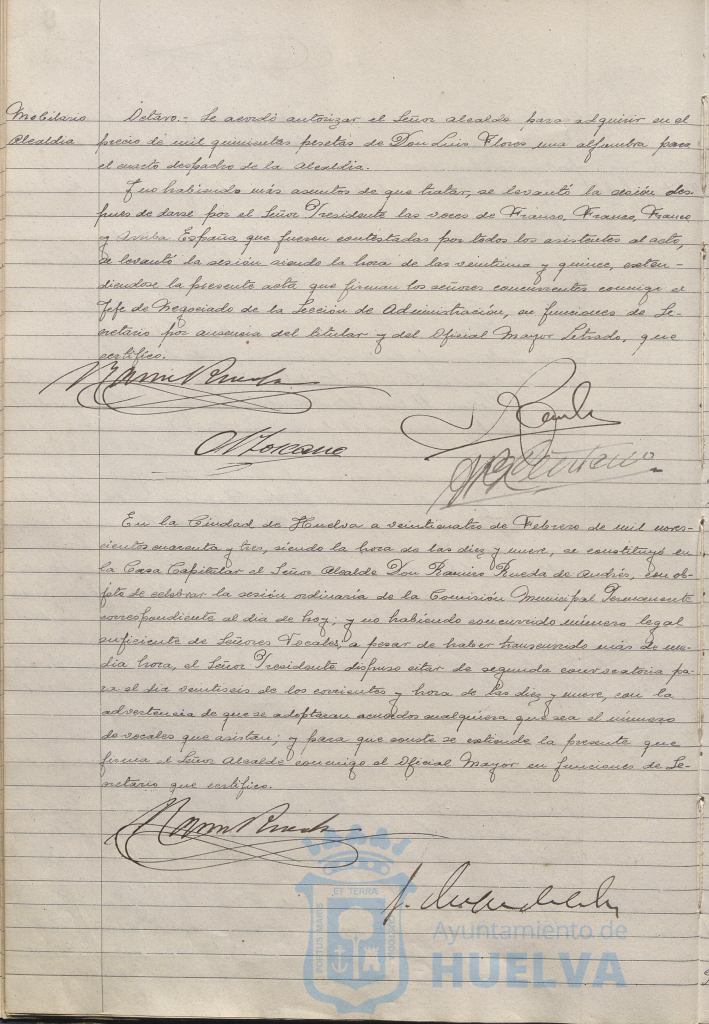 Mobiliario
Alcaldia
Octavo.- Se acordó autorizar el Señor Alcalde para adquirir en el
precio de mil quinientas pesetas de Don Luis Flores una alfombra para
el cuarto despacho de la Alcaldia.
Y no habiendo más asuntos de que tratar, se levantó la sesión des-
pues de darse por el Señor Presidente las voces de Franco, Franco, Franco
y Arriba España que fueron contestadas por todos los asistentes al acto,
se levantó la sesión siendo la hora de las veintiuna y quince, exten-
diendose la presente acta que firman los señores concurrentes conmigo el
Jefe de Negociado de la Sección de Administración, en funciones de Se-
cretario por ausencia del titular y del Oficial Mayor Letrado, que
certifico.
En la Ciudad de Huelva a veinticuatro de Febrero de mil nove-
cientos cuarenta y tres, siendo la hora de las diez y nueve, se constituyó en
la Casa Capitular el Señor Alcalde Don Ramiro Rueda de Andrés, con ob-
jeto de celebrar la sesión ordinaria de la Comisión Municipal Permanente
correspondiente al dia de hoy; y no habiendo concurrido número legal
suficiente de Señores Vocales, a pesar de haber transcurrido más de me-
dia hora, el Señor Presidente dispuso citar de segunda convocatoria pa-
ra el dia veintiseis de los corrientes y hora de las diez y nueve, con la
advertencia de que se adoptaran acuerdos cualquiera que sea el número
de vocales que asistan; y para que conste se extiende la presente que
firma el Señor Alcalde conmigo el Oficial Mayor en funciones de Se-
cretario que certifico.
PORTUS MARIS ET TERRAE CUSTODIA
Ayuntamiento de
HUELVA